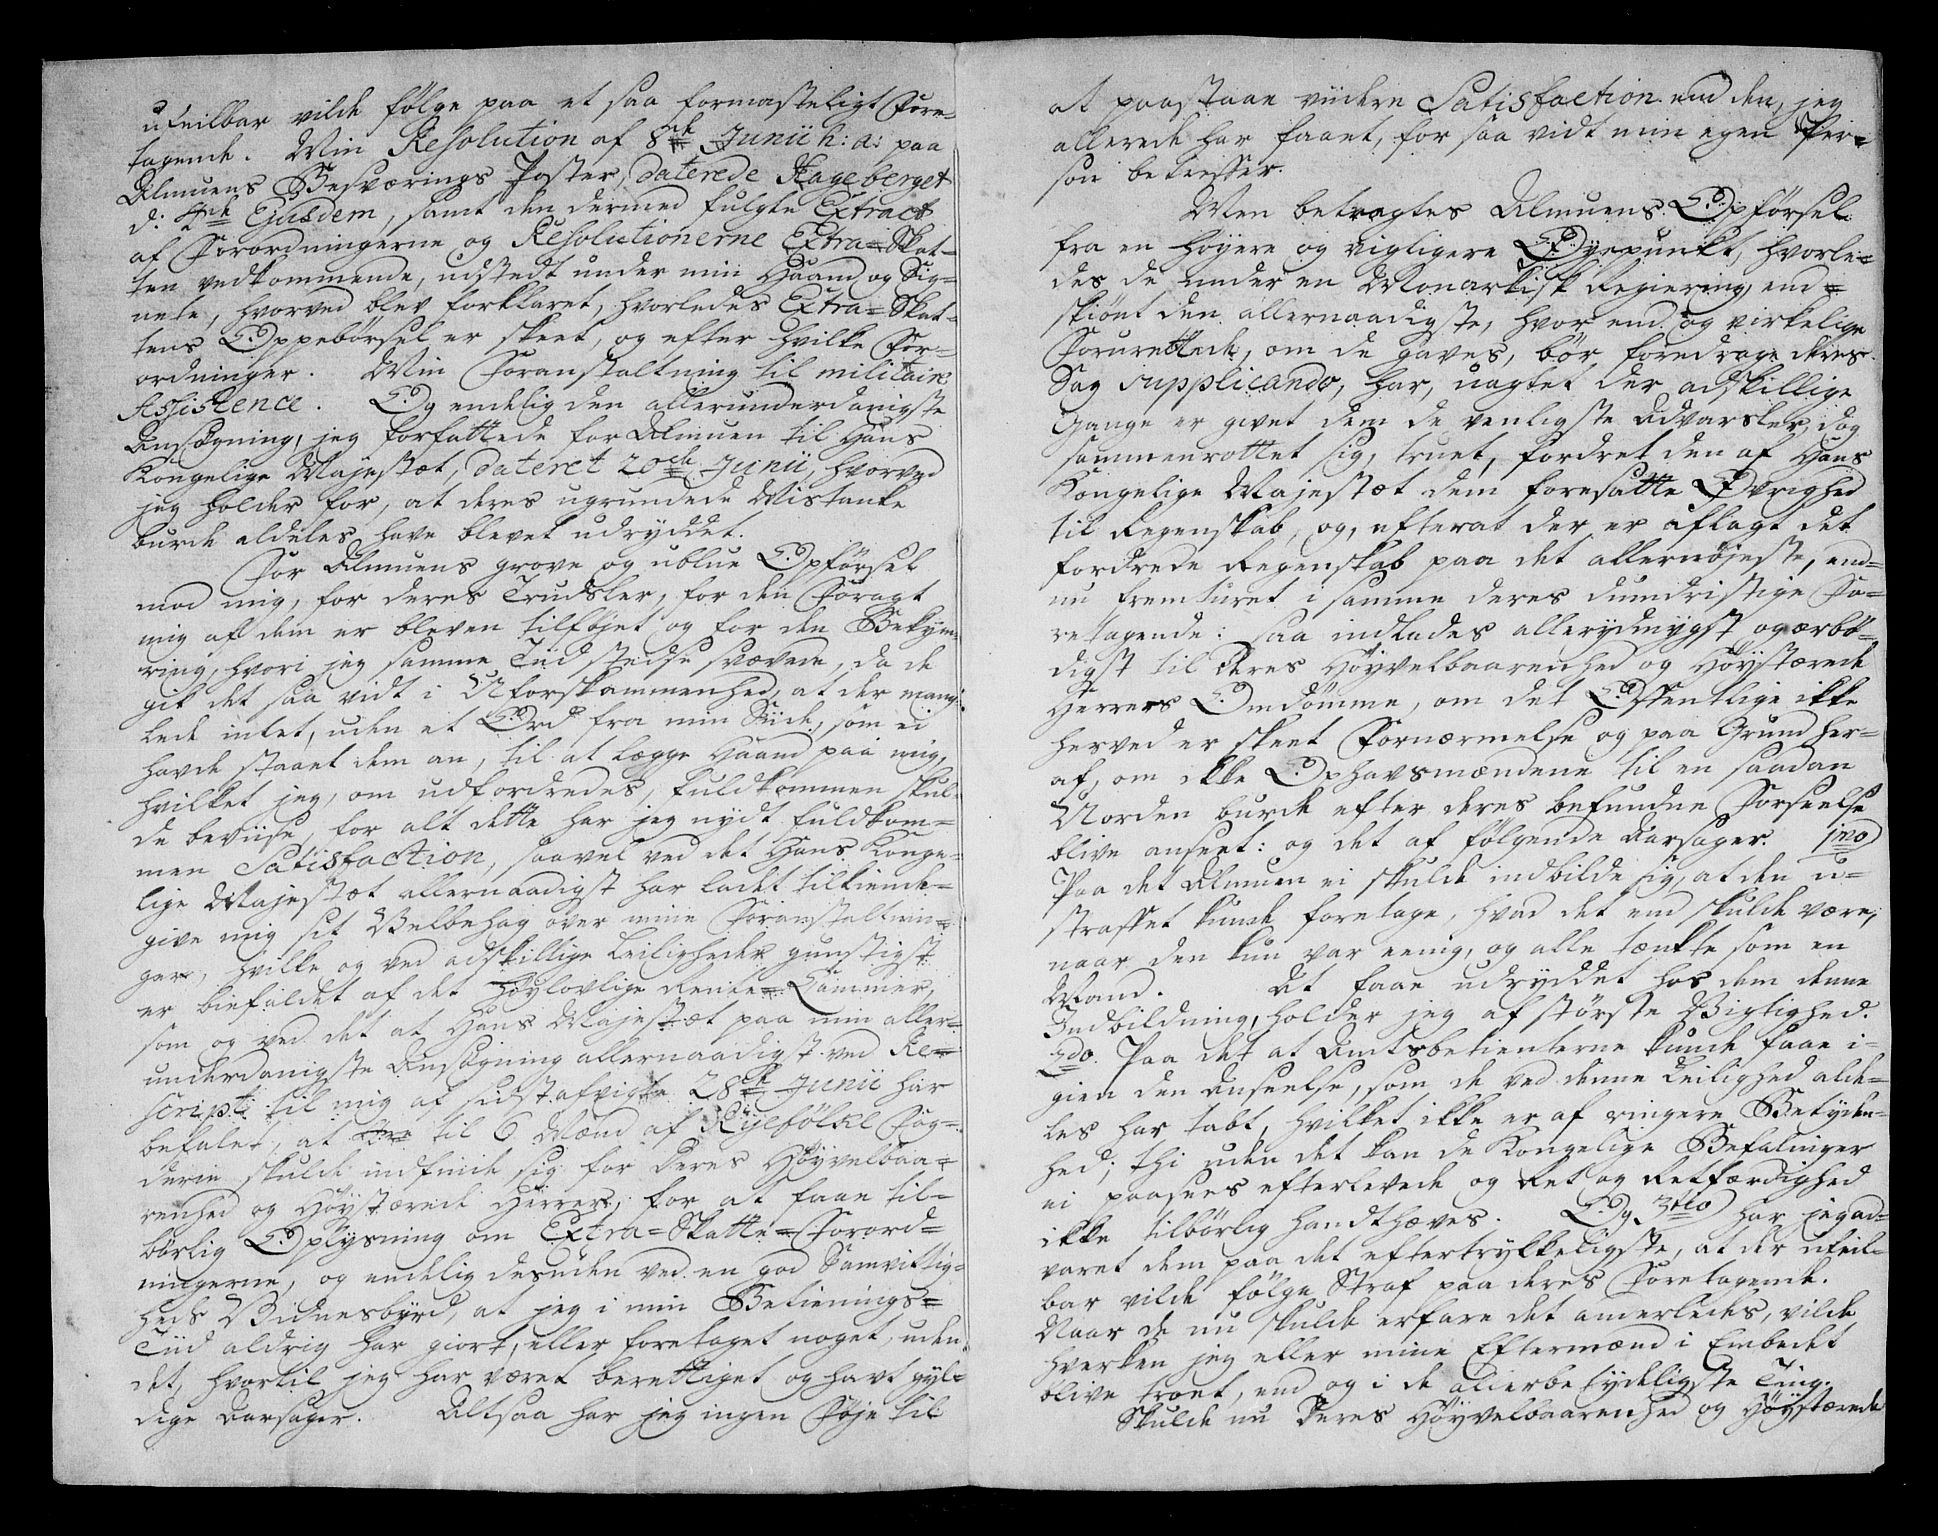 ufeilbar vilde følge paa et saa formasteligt Fore-
tagende. Min Resolution af 8de Junii h: a: paa
Almuens Besværings Poster, daterede Hageberget
d: 4de Ejusdem, samt den dermed fulgte Extract
af Forordningerne og Resolutionerne Extra-Skat-
ten vedkommende, udstedt under min Haand og Sig-
nete, hvorved blev forklaret, hvorledes Extra-Skat-
tens Oppebørsel er skeet, og efter hvilke For-
ordninger. Min Foranstaltning til militair
Assistence. Og endelig den allerunderdanigste
Ansøgning, jeg forfattede for Almuen til Hans
Kongelige Majestæt, dateret 20de Junii, hvorved
jeg holder for, at deres ugrundede Mistanke
burde aldeles have blevet udryddet.
For Almuens grove og ublue Opførsel
mod mig, for deres Trudsler, for den Foragt
mig af dem er bleven tilføjet og for den Bekym-
ring, hvori jeg samme Tiid stedse svævede, da de
gik det saa vidt i Uforskammenhed, at der mang-
lede intet, uden et Ord fra min Side, som ei
havde staaet dem an, til at lægge Haand paa mig,
hvilket jeg, om udfordredes, fuldkommen skul-
de beviise, for alt dette har jeg nydt fuldkom-
men Satisfaction, saavel ved det Hans Konge-
lige Majestæt allernaadigst har ladet tilkiende-
give mig sit Velbehag over mine Foranstaltnin-
ger, hvilke og ved adskillige Leiligheder gunstigst
er biefaldet af det Høylovlige Rente-Cammer,
som og ved det at Hans Majestæt paa min aller-
underdanigste Ansøgning allernaadigst ved Re-
script til mig af sidstafvigte 28de Junii har
befalet, at til 6 Mænd af Fog-
derie skulde indfinde sig for Deres Høyvelbaa-
renhed og Høystærede Herrer, for at faae til-
børlig Oplysning om Extra-Skatte-Forord-
ningerne, og endelig desuden ved en god Samvittig-
heds Vidnesbyrd, at jeg i min Betienings-
Tiid aldrig har giort, eller foretaget noget, uden
det, hvortil jeg har været berettiget og havt gyl-
dige Aarsager. Altsaa har jeg ingen Føje til
at paastaae viidere Satisfaction end den, jeg
allerede har faaet, for saa vidt min egen Per-
son betreffer.
Men betragtes Almuens Opførsel
fra en høyere og vigtigere Øyepunkt, hvorle-
des de under en Monarkisk Regiering, end-
skiønt den allernaadigste, hvor end og virkelige
Forurettede, om de gaves, bør foredrage deres
Sag supplicando, har, uagtet der adskillige
Gange er givet dem de venligste Advarsler, dog
sammenrottet sig, truet, fordret den af Hans
Kongelige Majestæt dem foresatte Øvrighed
til Regenskab, og, efterat der er aflagt det
fordrede Regenskab paa det allernøjeste, end-
nu fremturet i samme deres dumdristige Fo-
retagende: saa indlades allerydmygst og ærbø-
digst til Deres Høyvelbaarenhed og Høystærede
Herrers Omdømme, om det Offentlige ikke
herved er skeet Fornærmelse og paa Grund her-
af, om ikke Ophavsmændene til en saadan
Uorden burde efter deres befundne Forseelse
blive anseet: og det af følgende Aarsager. 1mo
Paa det Almuen ei skulde indbilde sig, at den u-
straffet kunde foretage, hvad det end skulde være,
naar den kun var eenig, og alle tænkte som en
Mand. At faae udryddet hos dem denne
Indbildning, holder jeg af største Vigtighed.
2do. Paa det at Amtsbetienterne kunde faae i-
gien den Anseelse, som de ved denne Leilighed alde-
les har tabt, hvilket ikke er af ringere Betyden-
hed; thi uden det kan de Kongelige Befalinger
ei paasees efterlevede og Ret og Retfærdighed
ikke tilbørlig handthæves. Og 3tio har jeg ad-
varet dem paa det eftertrykkeligste, at der ufeil-
bar vilde følge Straf paa deres Foretagende.
Naar de nu skulde erfare det anderledes, vilde
hverken jeg eller mine Eftermænd i Embedet
blive troet, end og i de allerbetydeligste Ting.
Skulde nu Deres Høyvelbaarenhed og Høystærede